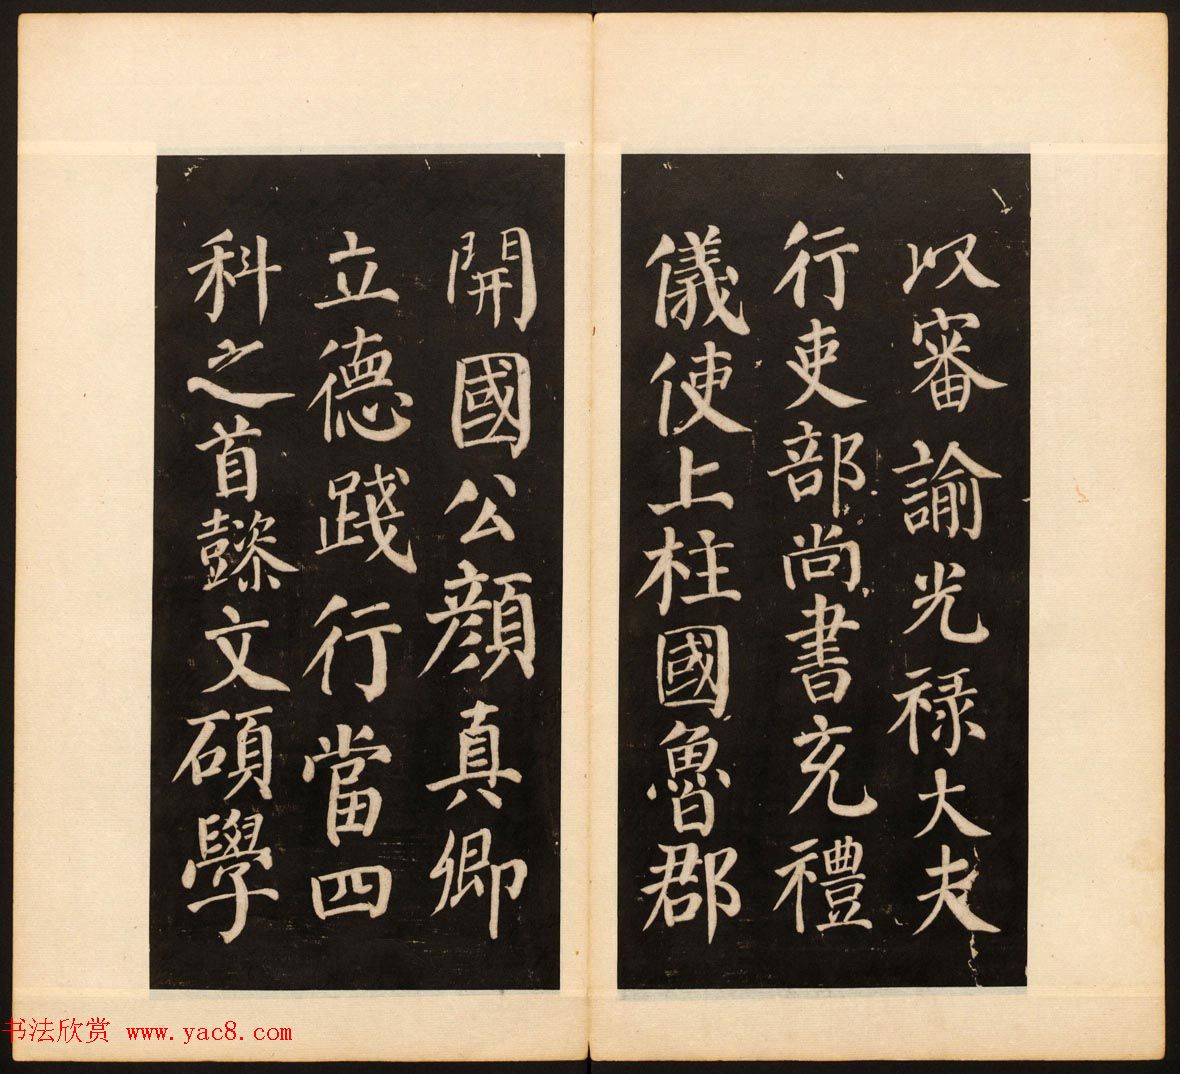 以審諭光禄大夫
行吏部尚書充禮
儀使上柱國魯郡
開國公顔真卿
立德踐行當四
科之首懿文碩學
书法欣赏 www.yac8.com